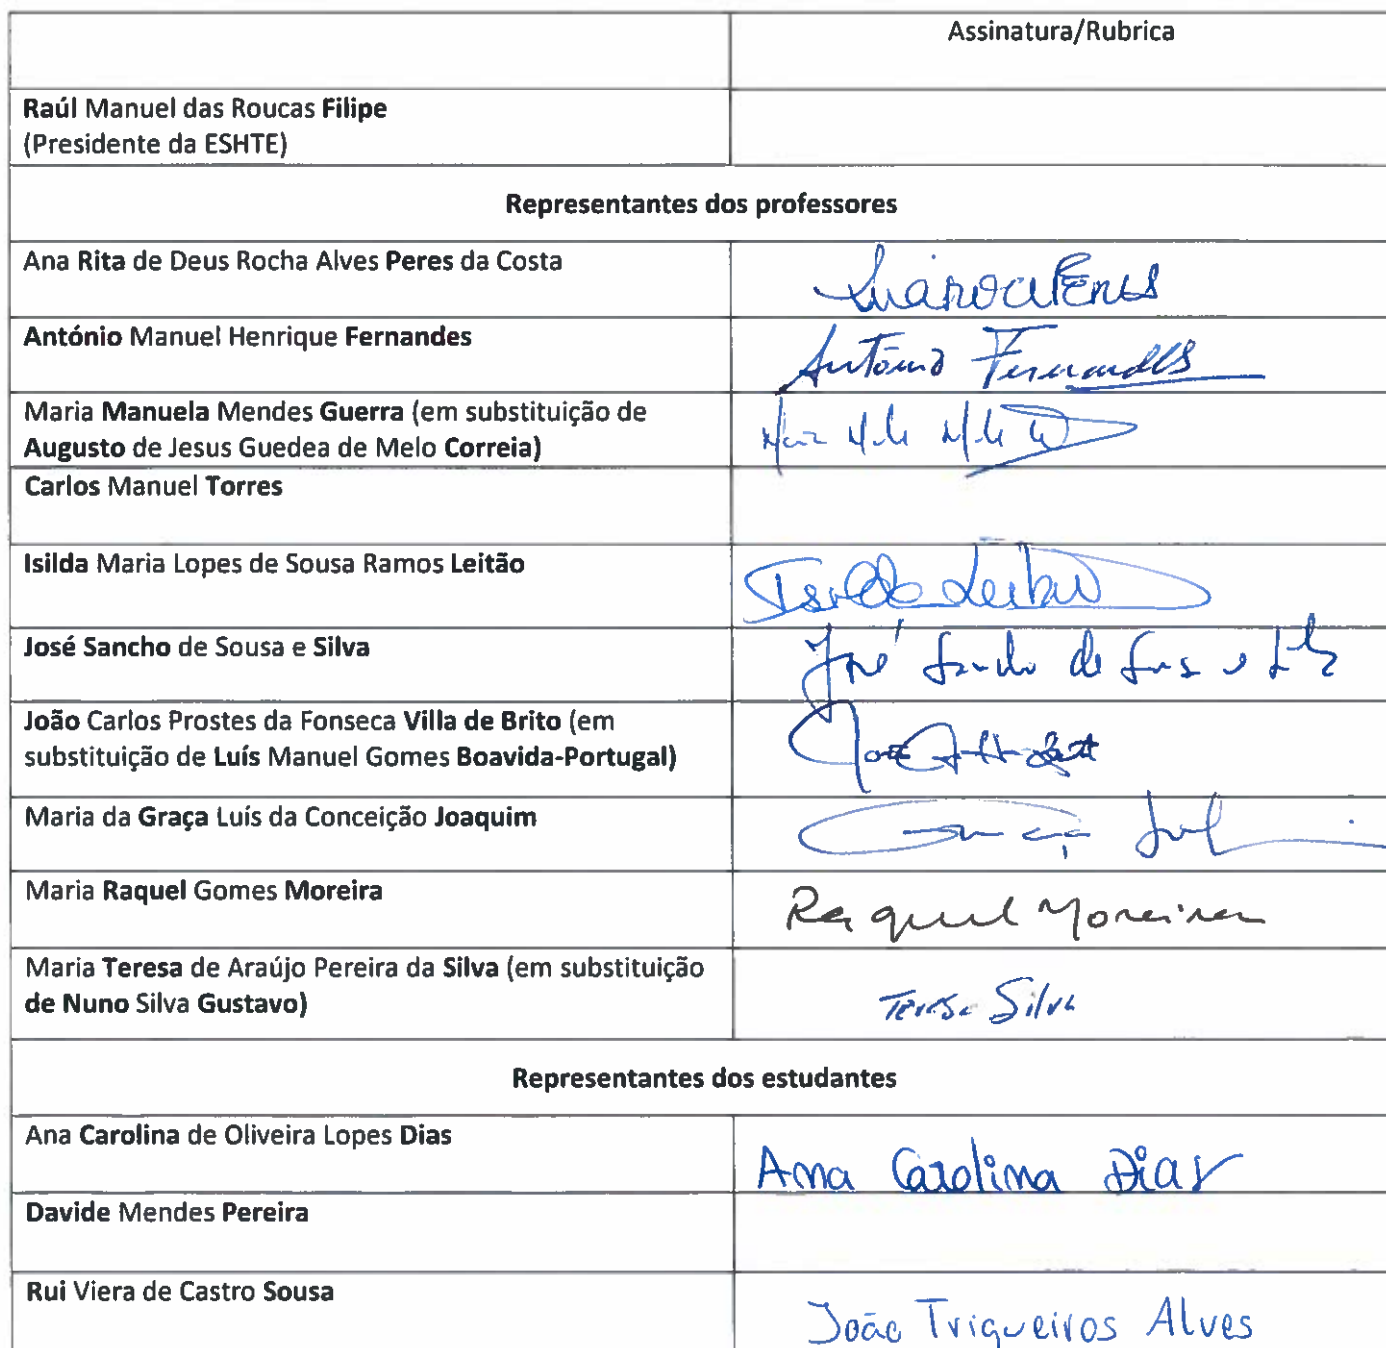 Assinatura/Rubrica
Raúl Manuel das Roucas Filipe
(Presidente da ESHTE)
Representantes dos professores
Ana Rita de Deus Rocha Alves Peres da Costa
António Manuel Henrique Fernandes
António Fernandes
Maria Manuela Mendes Guerra (em substituição de
Augusto de Jesus Guedea de Melo Correia)
Carlos Manuel Torres
Isilda Maria Lopes de Sousa Ramos Leitão
Isilda Leitão
José Sancho de Sousa e Silva
José Sancho de Sousa e Silva
João Carlos Prostes da Fonseca Villa de Brito (em
substituição de Luís Manuel Gomes Boavida-Portugal)
Maria da Graça Luís da Conceição Joaquim
Maria Raquel Gomes Moreira
Raquel Moreira
Maria Teresa de Araújo Pereira da Silva (em substituição
de Nuno Silva Gustavo)
Teresa Silva
Representantes dos estudantes
Ana Carolina de Oliveira Lopes Dias
Ana Carolina Dias
Davide Mendes Pereira
Rui Viera de Castro Sousa
João Trigueiros Alves